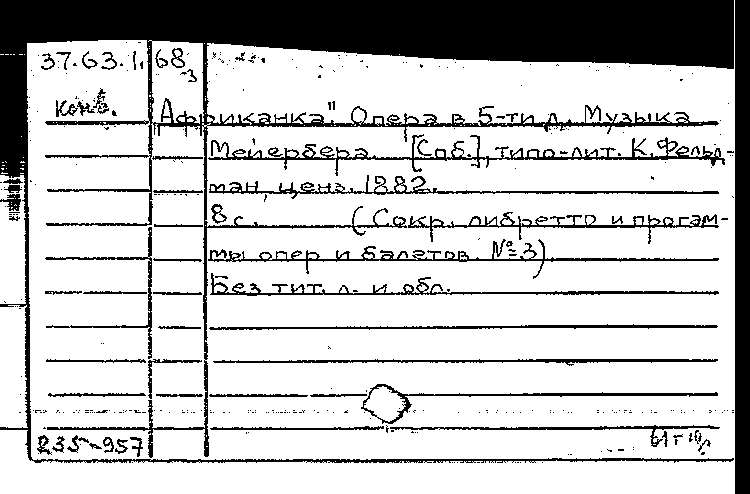 37.63.1. 68
-3
Конв. "Африканка". Опера в 5-ти д. Музыка
Мейербера. [Спб.], типо-лит. К. Фельд-
ман, ценз. 1882.
8 с. (Сокр. либретто и програм-
мы опер и балетов. № 3).
Без тит. л. и обл.
235-957 61 г